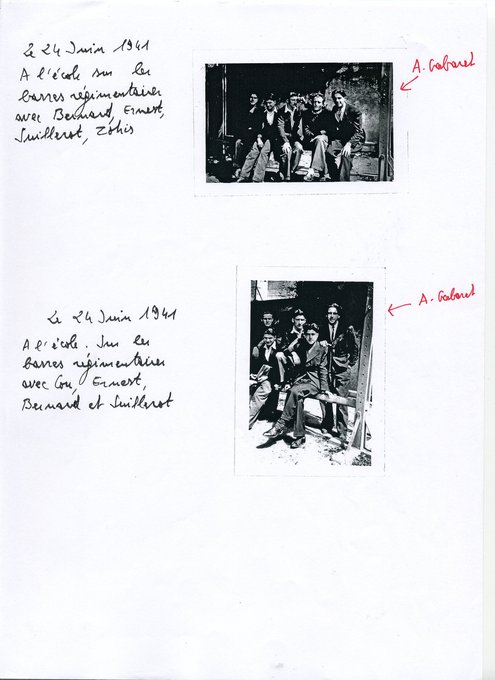 Le 24 Juin 1941
A l'école sur les
barres régimentaires
avec Bernard, Ernest,
Suillerot, Zéhis
A. Gabaret
Le 24 Juin 1941
A l'école. Sur les
barres régimentaires
avec Cou, Ernest,
Bernard et Suillerot
A. Gabaret